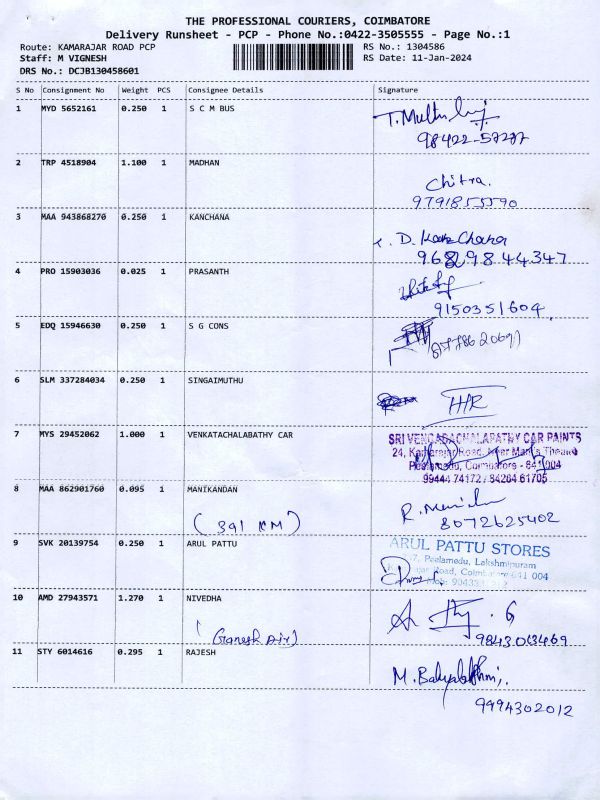 THE PROFESSIONAL COURIERS, COIMBATORE
Delivery Runsheet - PCP - Phone No.:0422-3505555 - Page No.:1
Route: KAMARAJAR ROAD PCP RS No.: 1304586
Staff: M VIGNESH RS Date: 11-Jan-2024
DRS No.: DCJB130458601
S No Consignment No Weight PCS Consignee Details Signature
1 MYD 5652161 0.250 1 S C M BUS
98422-57277
2 TRP 4518904 1.100 1 MADHAN
Chitra.
9791855590
3 MAA 943868270 0.250 1 KANCHANA
D.
9682984434​7
4 PRO 15903036 0.025 1 PRASANTH
9150351604
5 EDQ 15946630 0.250 1 S G CONS
6 SLM 337284034 0.250 1 SINGAIMUTHU
7 MYS 29452062 1.000 1 VENKATACHALABATHY CAR
SRI VENGADACHALAPATHY CAR PAINTS
24, Kamarajar Road, Near Mani's Theatre
Peelamedu, Coimbatore - 641 004
99444 74172 / 84264 61705
8 MAA 862901760 0.095 1 MANIKANDAN
(391 KM)
R.
8072625402
9 SVK 20139754 0.250 1 ARUL PATTU
ARUL PATTU STORES
Peelamedu, Lakshmipuram
Road, Coimbatore-641 004
10 AMD 27943571 1.270 1 NIVEDHA
(Ganesh Air)
9843013469
11 STY 6014616 0.295 1 RAJESH
M.
9994302012